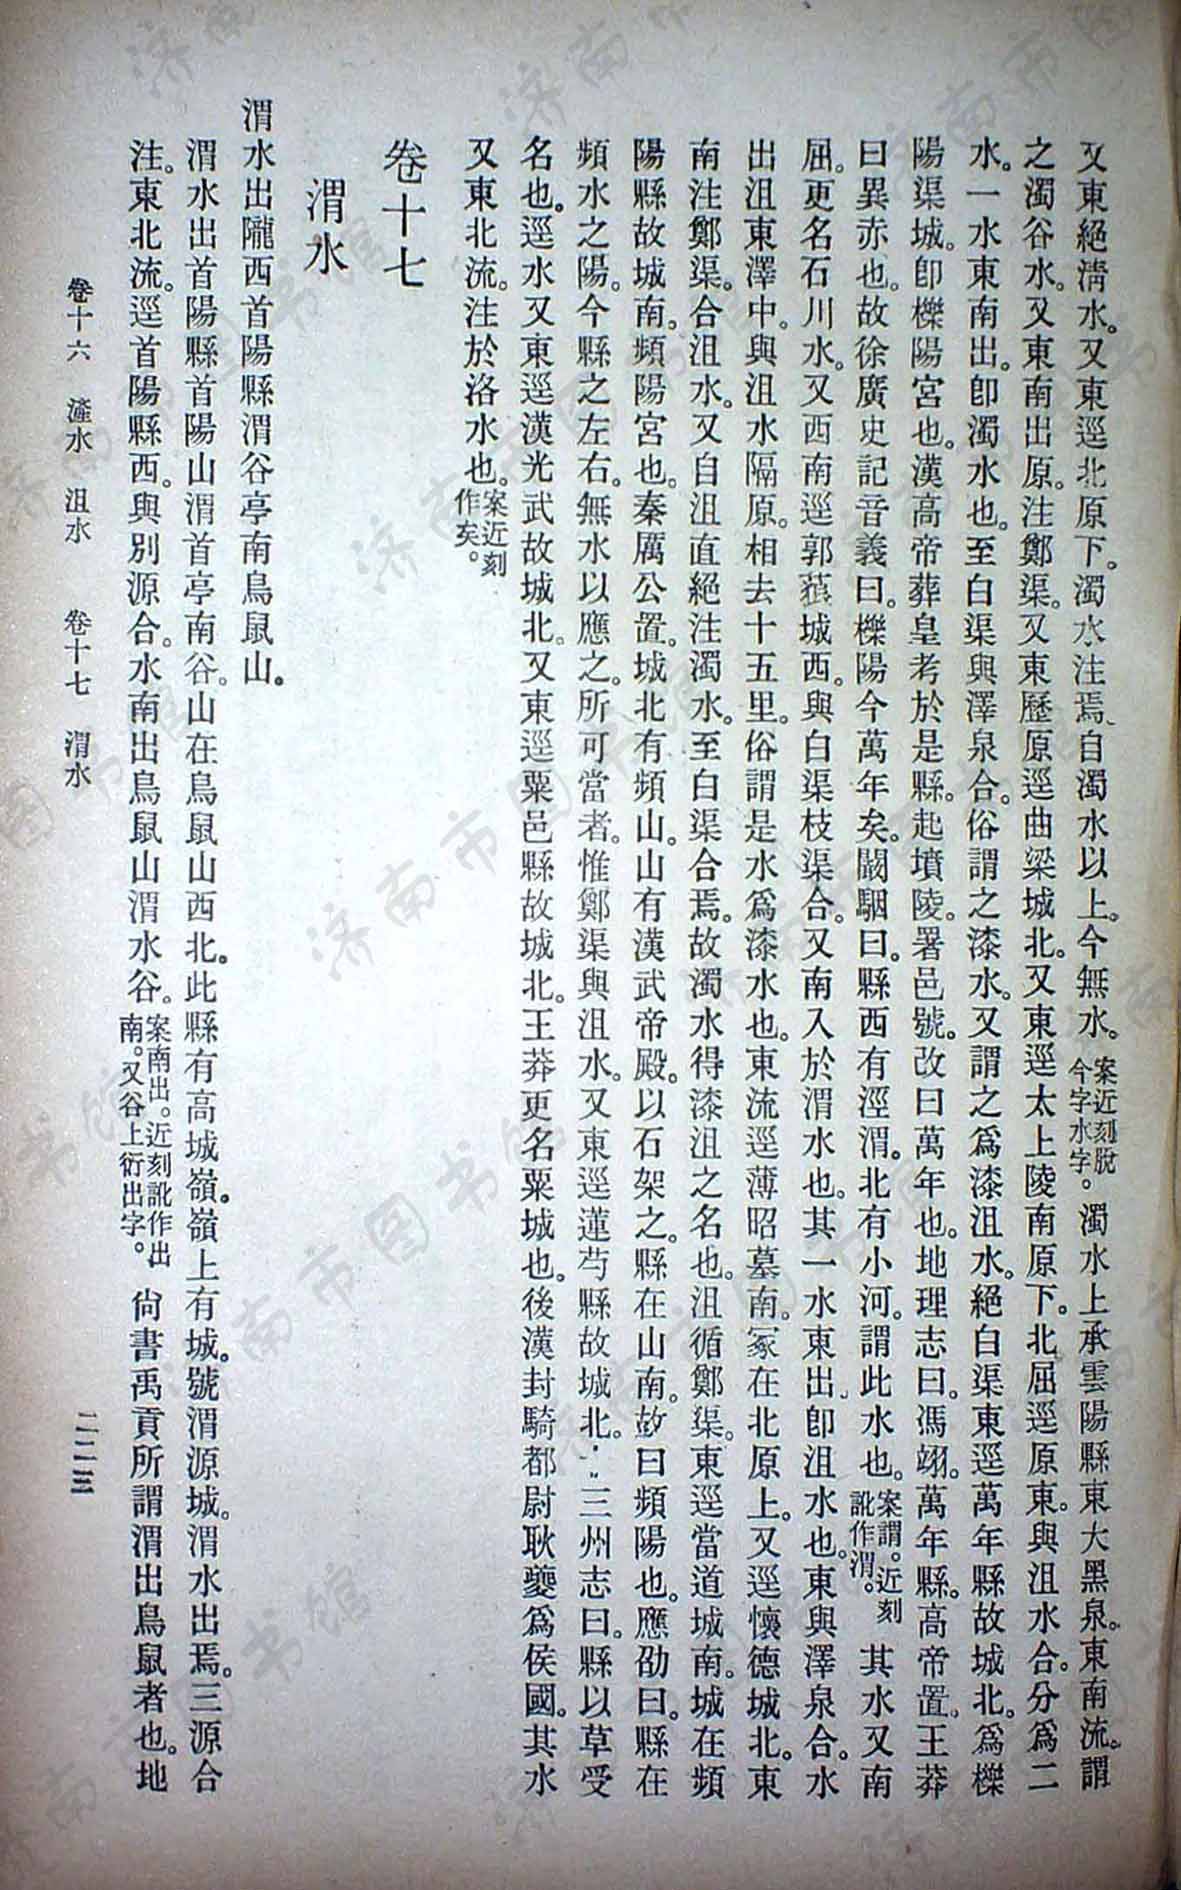 又東絕清水。又東逕北原下。濁水注焉。自濁水以上。今無水。案近刻脫今字水字。濁水上承雲陽縣東大黑泉。東南流。謂
之濁谷水。又東南出原。注鄭渠。又東歷原逕曲梁城北。又東逕太上陵南原下。北屈逕原東。與沮水合。分爲二
水。一水東南出。卽濁水也。至白渠與澤泉合。俗謂之漆水。又謂之爲漆沮水。絕白渠東逕萬年縣故城北。爲櫟
陽渠城。卽櫟陽宮也。漢高帝葬皇考於是縣。起墳陵。署邑號。改曰萬年也。地理志曰。馮翊。萬年縣。高帝置。王莽
曰異赤也。故徐廣史記音義曰。櫟陽今萬年矣。闞駰曰。縣西有涇渭。北有小河。謂此水也。案謂。近刻訛作渭。其水又南
屈。更名石川水。又西南逕郭䕤城西。與白渠枝渠合。又南入於渭水也。其一水東出。卽沮水也。東與澤泉合。水
出沮東澤中。與沮水隔原。相去十五里。俗謂是水爲漆水也。東流逕薄昭墓南。冢在北原上。又逕懷德城北。東
南注鄭渠。合沮水。又自沮直絕注濁水。至白渠合焉。故濁水得漆沮之名也。沮循鄭渠。東逕當道城南。城在頻
陽縣故城南。頻陽宮也。秦厲公置。城北有頻山。山有漢武帝殿。以石架之。縣在山南。故曰頻陽也。應劭曰。縣在
頻水之陽。今縣之左右。無水以應之。所可當者。惟鄭渠與沮水。又東逕蓮芍縣故城北。三州志曰。縣以草受
名也。逕水又東逕漢光武故城北。又東逕粟邑縣故城北。王莽更名粟城也。後漢封騎都尉耿夔爲侯國。其水
又東北流。注於洛水也。案近刻作矣。
卷十七
渭水
渭水出隴西首陽縣渭谷亭南鳥鼠山。
渭水出首陽縣首陽山渭首亭南谷。山在鳥鼠山西北。此縣有高城嶺。嶺上有城。號渭源城。渭水出焉。三源合
注。東北流。逕首陽縣西。與別源合。水南出鳥鼠山渭水谷。案南出。近刻訛作出南。又谷上衍出字。尙書禹貢所謂渭出鳥鼠者也。地
卷十六 滻水 沮水 卷十七 渭水 二二三
济南市图书馆